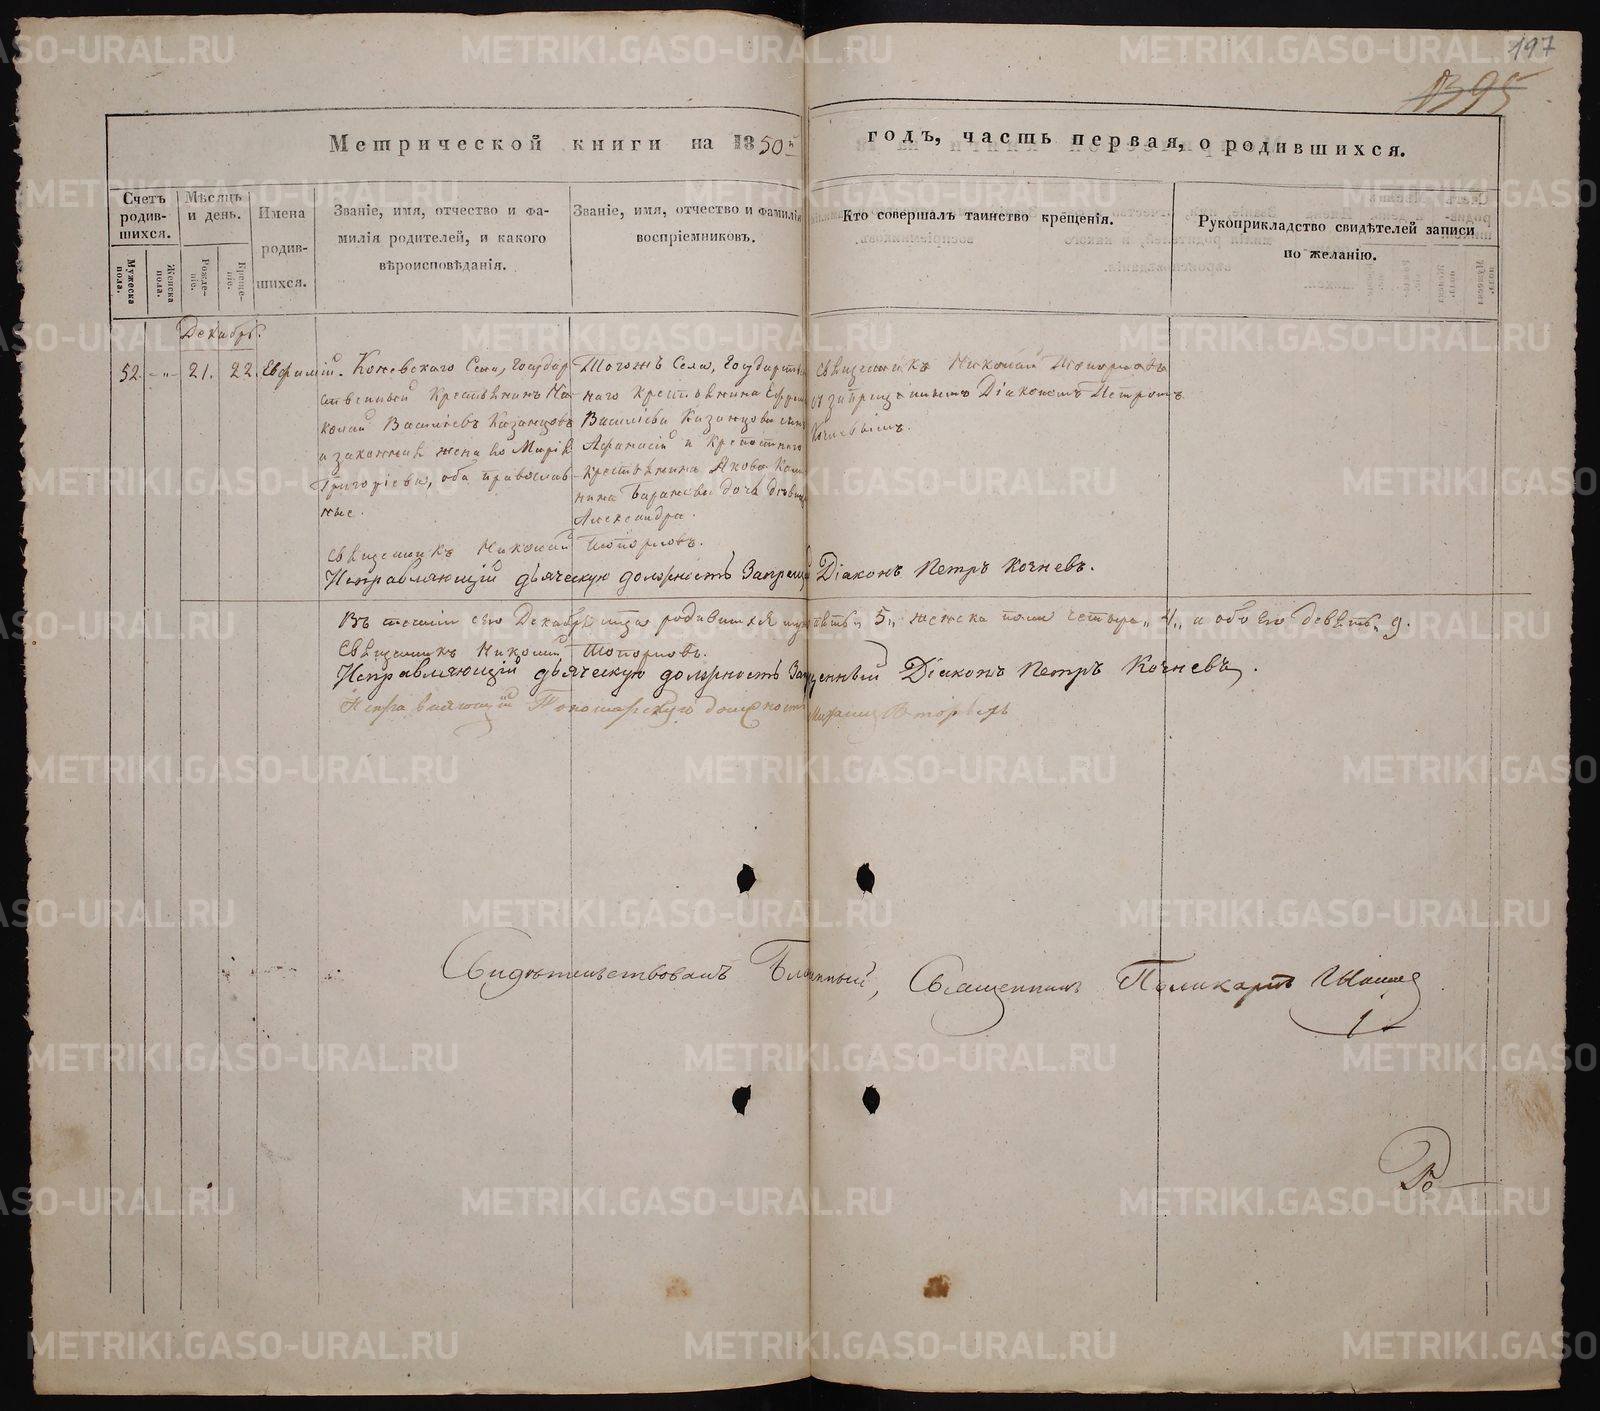 METRIKI.GASO-URAL.RU
197
1395
Метрической книги на 1850й годъ, часть первая, о родившихся.
Счетъ родившихся.
Мужеска пола.
Женска пола.
Мѣсяцъ и день.
Рожденіе.
Крещеніе.
Имена родившихся.
Званіе, имя, отчество и фамилія родителей, и какого вѣроисповѣданія.
Званіе, имя, отчество и фамилія воспріемниковъ.
Кто совершалъ таинство крещенія.
Рукоприкладство свидѣтелей записи по желанію.
Декабрь.
52. -"- 21. 22. Евфимій.
Коневскаго Села, Государ
ственный Крестьянинъ Ни
колай Васильевъ Казанцовъ
и законная жена его Марія
Григорьева, оба православ
ные.
Тогожъ Села, Государствен
наго крестьянина
Васильева Казанцова сынъ
Афанасій и
крестьянина Якова
Баранова дочь девица
Александра.
Священникъ Николай Топорковъ
запрещеннымъ Діакономъ Петромъ
Кочневымъ.
Священникъ Николай Топорковъ.
Исправляющій дьяческую должность Запрещ Діаконъ Петръ Кочневъ.
Въ теченіи сего Декабря родившихся 5,, женска пола четыре,, 4,, и обоего девять,, 9.
Священникъ Николай Топорковъ.
Исправляющій дьяческую должность Запрещенный Діаконъ Петръ Кочневъ.
Исправляющій Пономарскую должность
Свидѣтельствовалъ Благочинный, Священникъ Поликарпъ